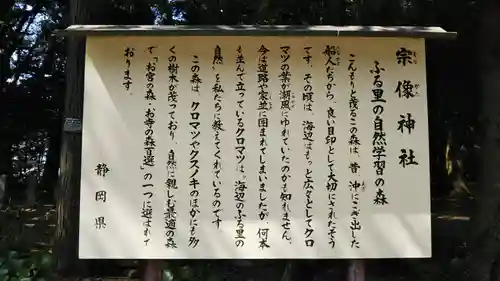 宗像神社
ふる里の自然学習の森
こんもりと茂るこの森は、昔 沖にこぎ出した
船人たちから、良い目印として大切にされたそう
です。その頃は、海辺はもっと広々としてクロ
マツの葉が潮風にゆれていたのかも知れません。
今は道路や家並に囲まれてしまいましたが、何本
も並んで立っているクロマツは、海辺のふる里の
自然を私たちに教えてくれているのです。
この森は、クロマツやクスノキのほかにも多
くの樹木が茂っており、自然に親しむ最適の森
で「お宮の森・お寺の森百選」の一つに選ばれて
おります。
静岡県